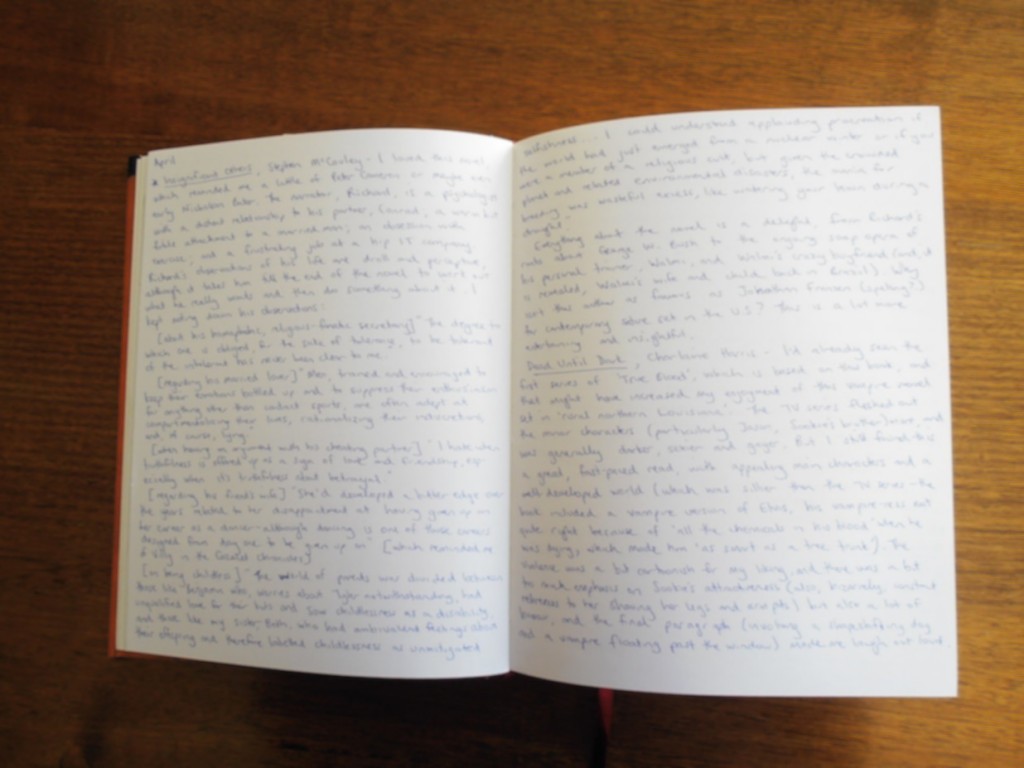 April
* Insignificant Others, Stephen McCauley - I loved this novel
which reminded me a little of Peter Cameron or maybe even
early Nicholson Baker. The narrator, Richard, is a psychologist
with a distant relationship to his partner, Conrad, a
attachment to a married man, an obsession with
exercise, and a frustrating job at a hip IT company.
Richard's observations of his life are droll and perceptive,
although it takes him till the end of the novel to work out
what he really wants and then do something about it. I
kept noting down his observations:
[about his homophobic, religious-fanatic secretary] "The degree to
which one is obliged, for the sake of tolerance, to be tolerant
of the intolerant has never been clear to me."
[regarding his married lover] "Men, trained and encouraged to
keep their emotions bottled up and to suppress their enthusiasm
for anything other than contact sports, are often adept at
compartmentalizing their lives, rationalizing their
and, of course, lying."
[when having an argument with his cheating partner] "I hate when
truthfulness is offered up as a sign of love and friendship, esp-
ecially when it's truthfulness about betrayal."
[regarding his friend's wife] "She'd developed a bitter edge over
the years related to her disappointment at having given up on
her career as a dancer - although dancing is one of those careers
designed from day one to be given up on" [which reminded me
of Tilly in the Cazalet Chronicles]
[on being childless] "The world of parents was divided between
those like Benjamin who, worries about Tyler notwithstanding, had
unqualified love for their kids and saw childlessness as a disability,
and those like my sister Beth, who had ambivalent feelings about
their offspring and therefore labeled childlessness as unmitigated
selfishness... I could understand applauding procreation if
the world had just emerged from a nuclear winter or if you
were a member of a religious cult, but given the crowded
planet and related environmental disasters, the mania for
breeding was wasteful excess, like watering your lawn during a
drought."
Everything about the novel is a delight, from Richard's
rants about George W. Bush to the ongoing soap opera of
his personal trainer, Walmir, and Walmir's crazy boyfriend (and, it
is revealed, Walmir's wife and child back in Brazil). Why
isn't this author as famous as Jonathan Franzen (spelling?)
for contemporary satire set in the U.S? This is a lot more
entertaining and insightful.
Dead Until Dark, Charlaine Harris - I'd already seen the
first series of 'True Blood', which is based on this book, and
that might have increased my enjoyment of this vampire novel
set in 'rural northern Louisiana'. The TV series fleshed out
the minor characters (particularly Jason, Sookie's brother)more, and
was generally darker, sexier and gayer. But I still found this
a good, fast-paced read, with appealing main characters and a
well-developed world (which was sillier than the TV series - the
book included a vampire version of Elvis, his vampireness not
quite right because of "all the chemicals in his blood" when he
was dying, which made him "as smart as a tree trunk"). The
violence was a bit cartoonish for my liking, and there was a bit
too much emphasis on Sookie's attractiveness (also, bizarrely, constant
references to her shaving her legs and armpits) but also a lot of
humour, and the final paragraph (involving a shapeshifting dog
and a vampire floating past the window) made me laugh out loud